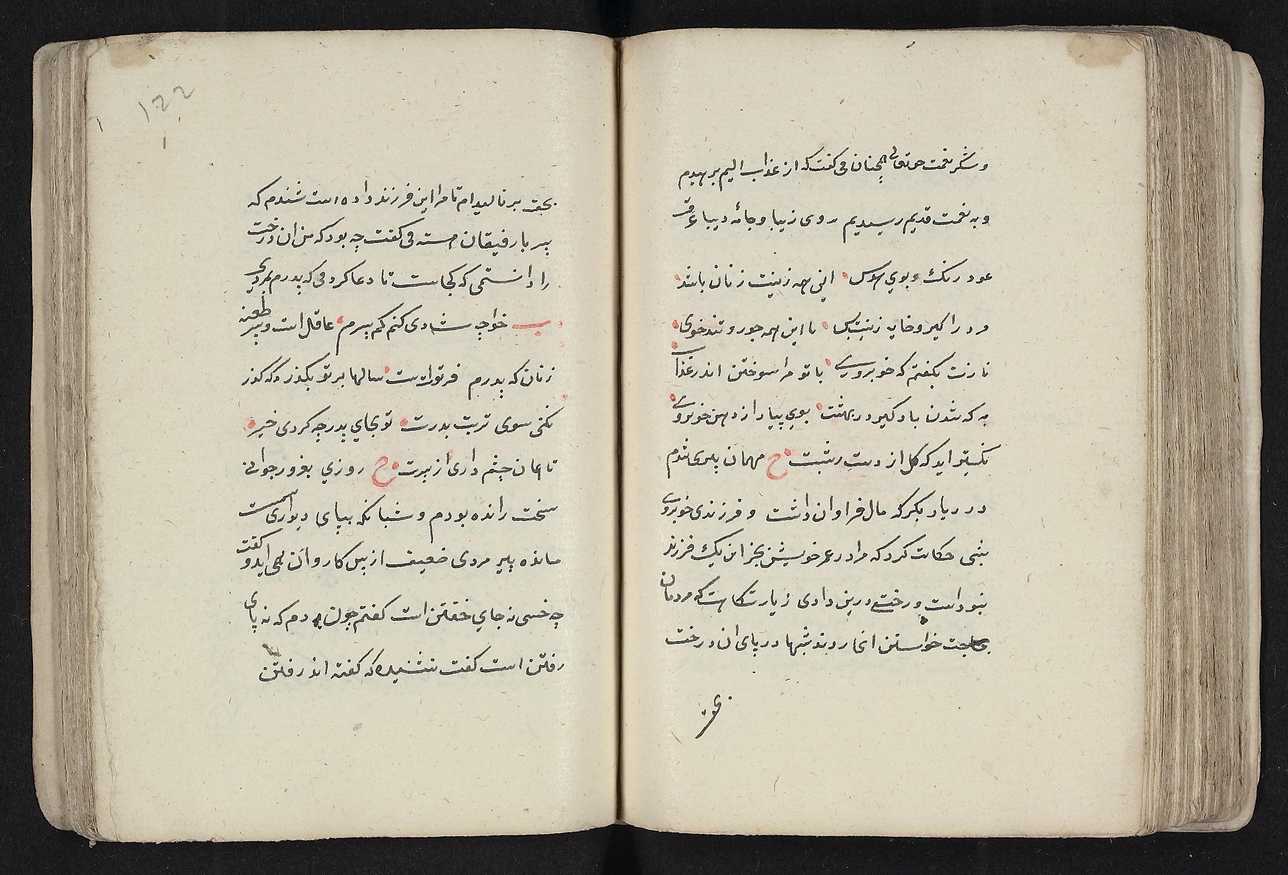 و شکر نعمت حقتعالی همچنان می گفت که از عذاب الیم برهیدم
و به نعمت قدیم رسیدیم روی زیبا و جامه دیبا عرق
عود رنک و بوی هوس این همه زینت زنان باشد
مرد را کیر و خایه زینت بس با این همه جور و تندخوی
نازت بکشم که خوبروی با تو مرا سوختن اندر عذاب
به که شدن با دگیر در بهشت بوی پیاز از دهن خوبروی
نکستو اید که کل از دست زشت ح مهمان پیری شدم
در دیار بکر که مال فراوان داشت و فرزندی خوبروی
شبی حکایت کرد که مرا در عمر خویش بجز این یک فرزند
نبوداست درختی درین وادی زیارتکاهست که مردمان
بحاجت خواستن انجا روند شبها در پای ان درخت
بحق
122
بحق برنالیدام تا مرا این فرزند داده است شنیدم که
پسر با رفیقان اهسته می گفت چه بود که من ان درخت
را دانستمی که کجاست تا دعا کردمی که پدرم بمردی
خواجه شادی کنم که پسرم عاقل است و پسر طعنه
زنان که پدرم فرتوتست سالها بر تو بگذرد که گذر
نکنی سوی تربت پدرت تو بجای پدر چه کردی خیر
تا همان چشم داری از پسرت ح روزی بغرور جوانی
سخت رانده بودم و شبانگه بپای دیواری سست
مانده پیر مردی ضعیف از پس کاروان همی اید و گفت
چه خسپی نه جای خفتن است گفتم چون روم که نه پای
رفتن است گفت نشنیدۀ که گفته اند رفتن